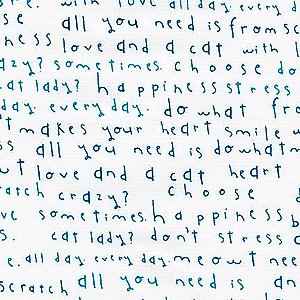 e. with love all day. ev
se all you need is from sc
ness love and a cat with l
azy? sometimes. choose do
cat lady? happiness stress
day. every day. do what fro
't makes your heart smile w
s all you need is do what m
out love and a cat heart
ratch crazy? choose d
ve sometimes. happiness b
s. cat lady? don't stress c
e. all day. every day. meout nee
scratch all you need is an